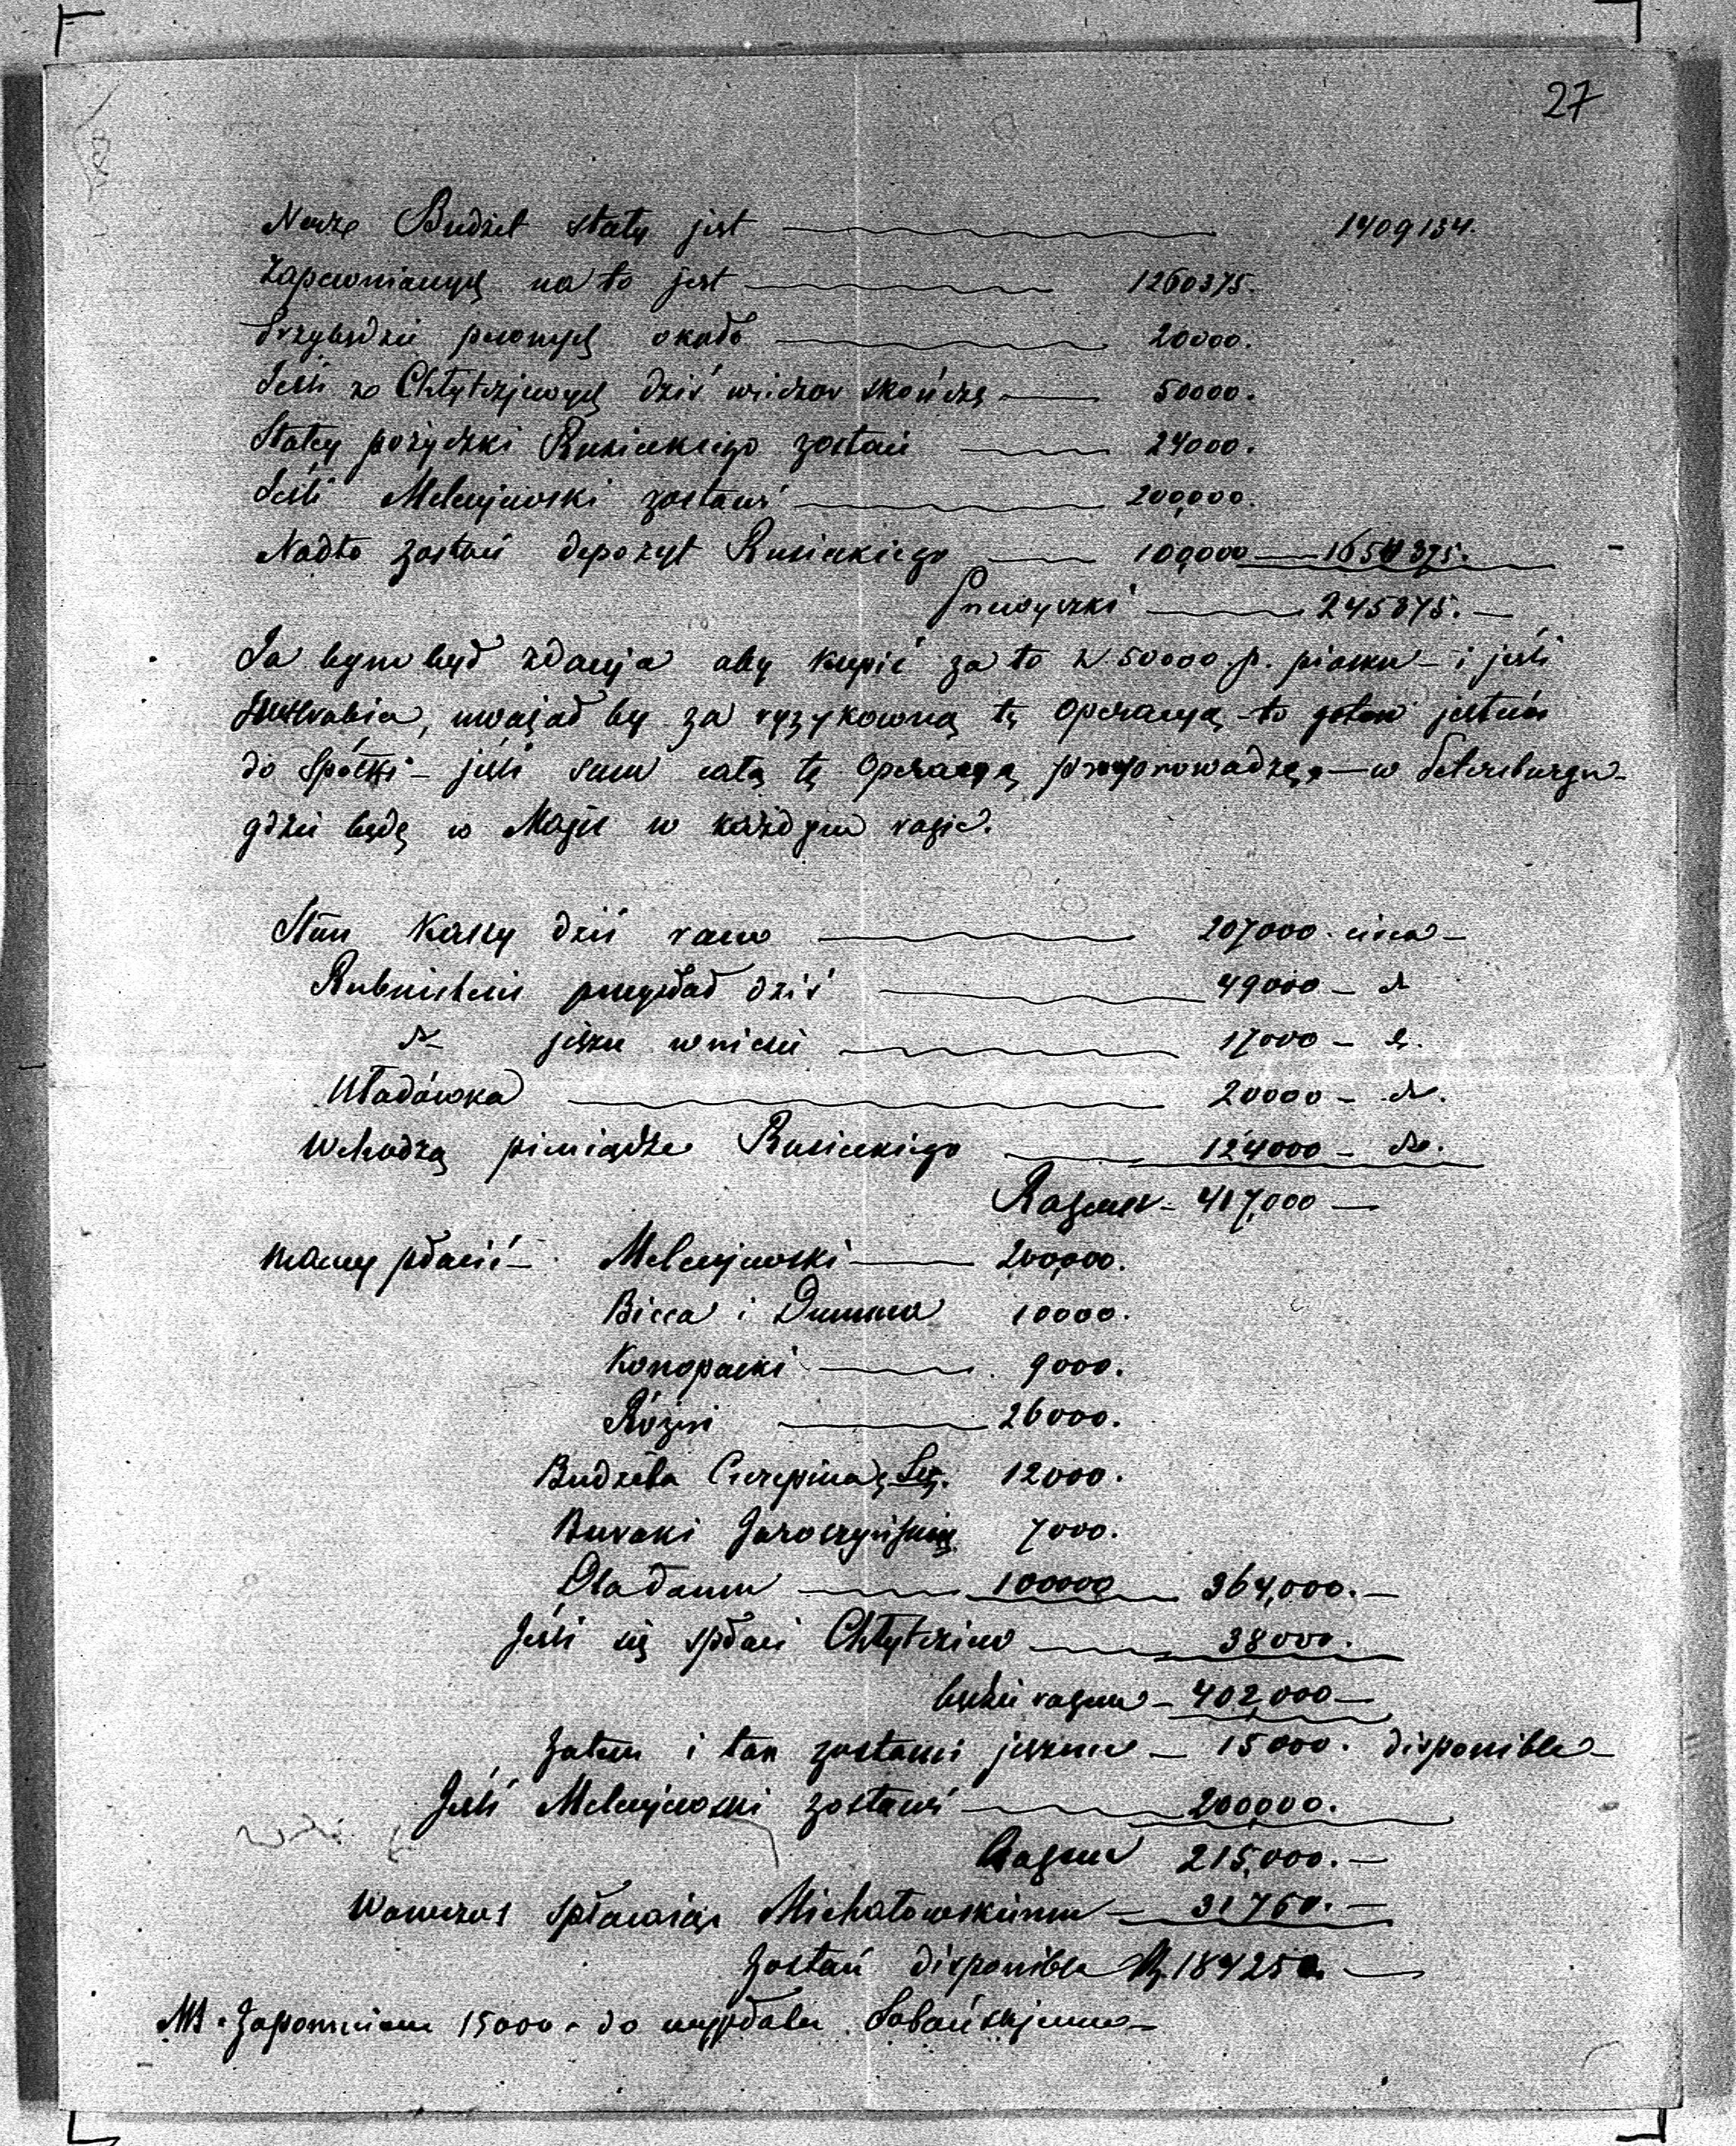 27
Nasz Budżet stały jest 1409134.
Zapewnionych na to jest 1260375.
Przybędzie pewnych około 20000.
Jeśli z dziś wieczor skończę 50000.
Stałej pożyczki Rusieckiego zostaie 24000.
Jeśli zostawi 200,000.
Nadto zostaie depozyt Rusieckiego 100,000 375.
Przewyżki 245375.
Ja bym był zdania aby kupić za to z 50000 p. piasku - i jeśli
Hrabia, uważał by za ryzykowną tę operacyą - to gotow jestem
do Spółki - jeśli sam całą tę Operacyą przeprowadzę, - w Petersburgu -
gdzie będę w Maju w każdym razie.
Stan Kassy dziś rano 207000. circa -
przysłał dziś 49000 - do
do jeszcze wniesie 17000 - do.
Uładówka 20000 - do.
Wchodzą pieniądze Rusieckiego 124000 - do.
Razem - 417,000 -
Mamy płacić - 200,000.
i 10000.
Konopacki 9000.
Różni 26000.
Budżeta 12000.
Buraki 7000.
100000 364,000. -
Jeśli się spłaci 38000.
będzie razem - 402,000 -
Zatem i tak zostanie jeszcze - 15000. disponible -
Jeśli zostawi 200,000.
Razem 215,000. -
Wowczas spłacając Michałowskiemu - 31760. -
Zostaie disponible
NB. Zapomniałem 15000 - do wypłaty Sobańskiemu -